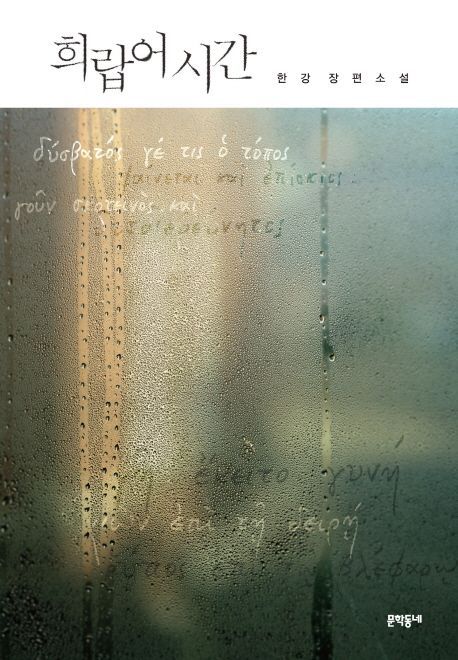 희랍어 시간
한강 장편소설
δύσβατός γέ τις ὁ τόπος
φαίνεται καὶ ἐπίσκιος
γοῦν σκοτεινὸς καὶ
ἔκειτο γυνή
ἐπὶ τῇ δειρῇ
문학동네